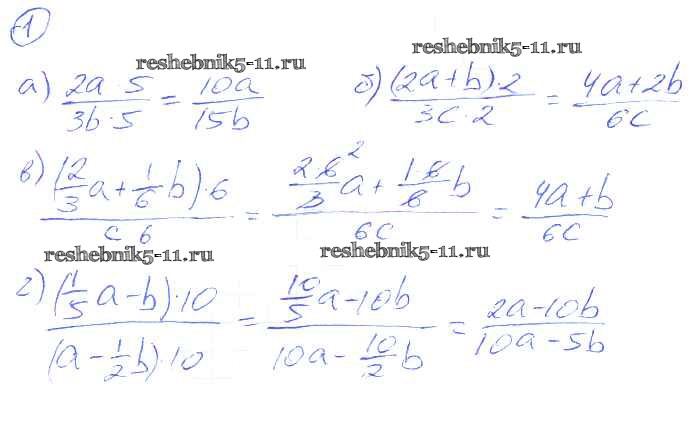 1
reshebnik5-11.ru reshebnik5-11.ru
а) 2a·5/3b·5 = 10a/15b б) (2a+b)·2/3c·2 = 4a+2b/6c
в) (2/3a+1/6b)·6/c 6 = 2·6 2/3a+1·6/6b/6c = 4a+b/6c
reshebnik5-11.ru reshebnik5-11.ru
г) (1/5a-b)·10/(a-1/2b)·10 = 10/5a-10b/10a-10/2b = 2a-10b/10a-5b